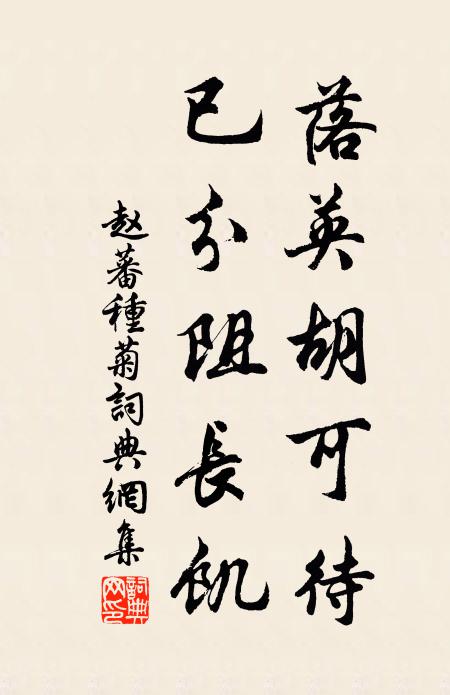 落英胡可待
已分阻長飢
赵蕃種菊詞典網集
詞典網印